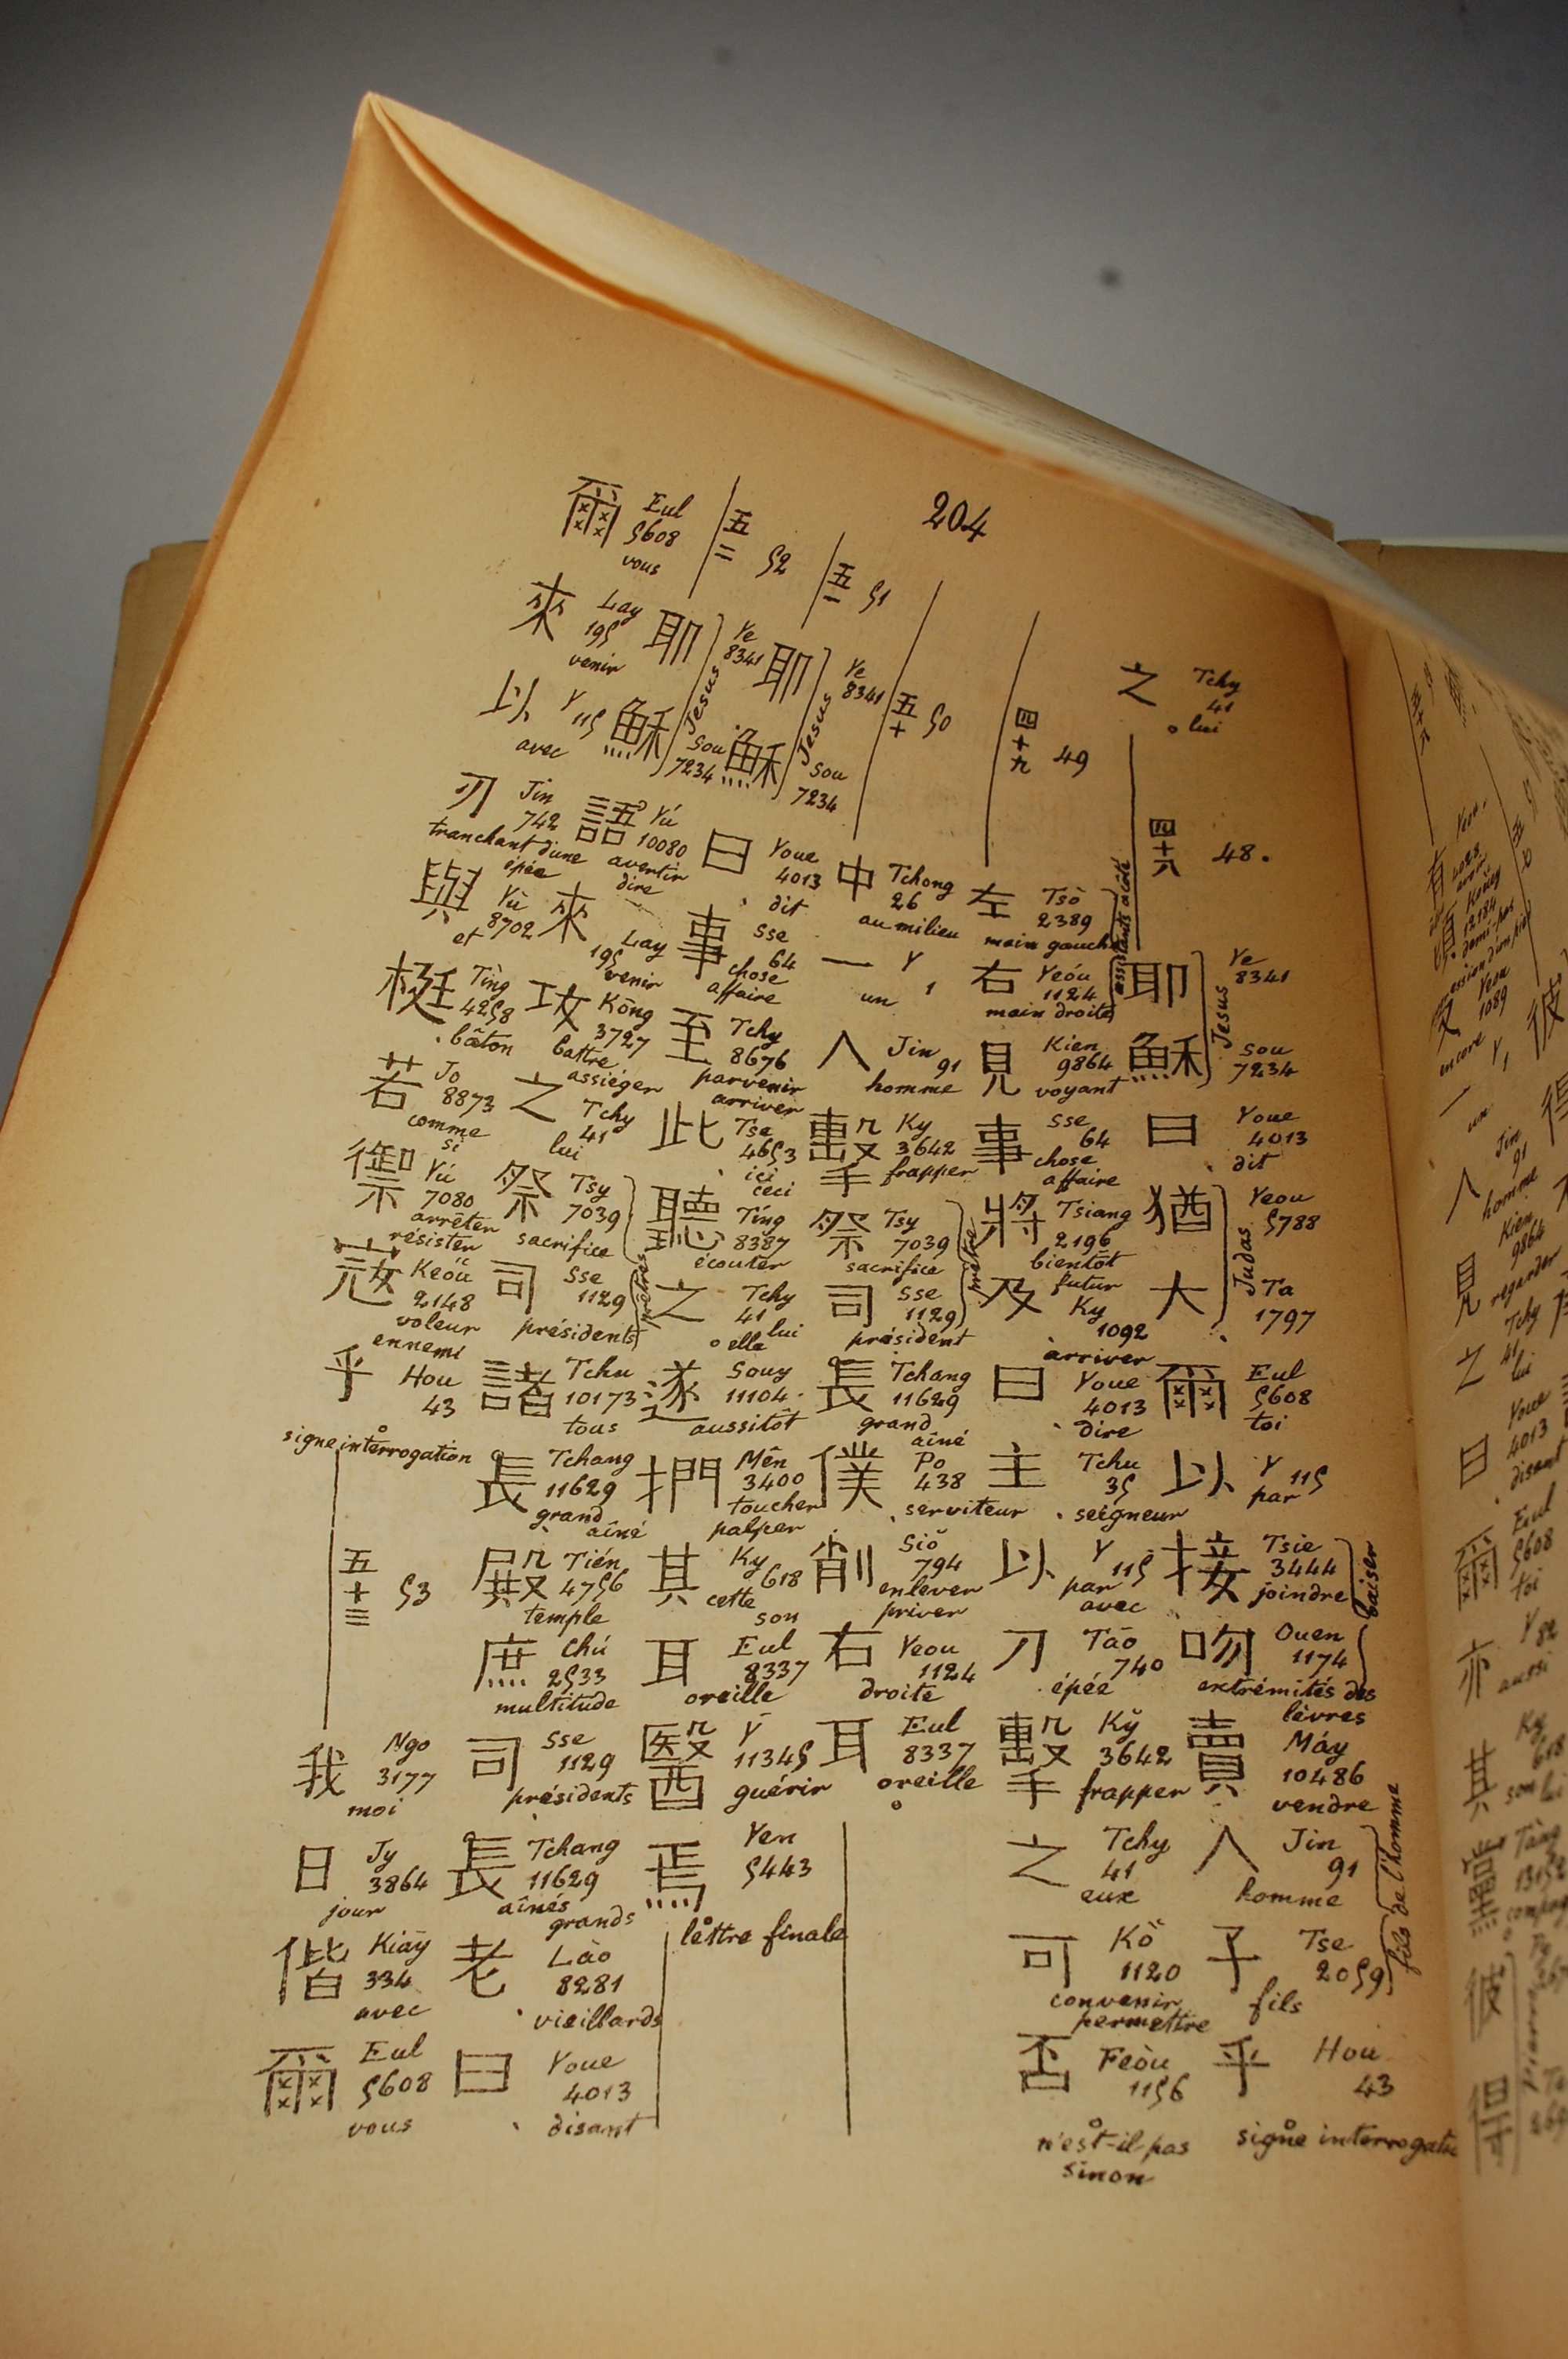 204
之 Tchy
41
lui
四十八 48.
耶 Ye
8341
穌 Sou
7234
Jesus
曰 Youe
4013
dit
猶 Yeou
5788
大 Ta
1797
Judas
爾 Eul
5608
toi
以 Y
115
par
接 Tsie
3444
joindre
吻 Ouen
1174
extrémités des
lèvres
baiser
賣 Máy
10486
vendre
人 Jin
91
homme
子 Tse
2059
fils
fils de l'homme
乎 Hou
43
signe interrogati
四十九 49
左 Tsò
2389
main gauche
右 Yeóu
1124
main droite
assistants à côté
見 Kien
9864
voyant
事 Sse
64
chose
affaire
將 Tsiang
2196
bientôt
futur
及 Ky
1092
arriver
曰 Youe
4013
dire
主 Tchu
35
seigneur
以 Y
115
par
avec
刀 Tāo
740
épée
擊 Kÿ
3642
frapper
之 Tchy
41
eux
可 Kŏ
1120
convenir
permettre
否 Feòu
1156
n'est-il-pas
sinon
五十 50
中 Tchong
26
au milieu
一 Y
1
un
人 Jin
91
homme
擊 Ky
3642
frapper
祭 Tsy
7039
sacrifice
司 Sse
1129
président
長 Tchang
11629
grand
aîné
僕 Po
438
serviteur
削 Siŏ
794
enlever
priver
右 Yeou
1124
droite
耳 Eul
8337
oreille
五一 51
耶 Ye
8341
穌 Sou
7234
Jesus
曰 Youe
4013
dit
事 Sse
64
chose
affaire
至 Tchy
8676
parvenir
arriver
此 Tse
4653
ici
ceci
聽 Tíng
8387
écouter
之 Tchy
41
lui
elle
遂 Souy
11104
aussitôt
捫 Mên
3400
toucher
palper
其 Ky
618
cette
son
耳 Eul
8337
oreille
醫 Y
11345
guérir
焉 Yen
5443
lettre finale
五二 52
耶 Ye
8341
穌 Sou
7234
Jesus
語 Yú
10080
avertir
dire
來 Lay
195
venir
攻 Kōng
3727
battre
assiéger
之 Tchy
41
lui
祭 Tsy
7039
sacrifice
司 Sse
1129
présidents
諸 Tchu
10173
tous
長 Tchang
11629
grand
aîné
殿 Tién
4756
temple
庶 Chú
2533
multitude
司 Sse
1129
présidents
長 Tchang
11629
aînés
grands
老 Lào
8281
vieillards
曰 Youe
4013
disant
爾 Eul
5608
vous
來 Lay
195
venir
以 Y
115
avec
刃 Jin
742
tranchant d'une
épée
與 Yù
8702
et
梃 Tìng
4258
bâton
若 Jo
8873
comme
si
禦 Yú
7080
arrêter
résister
寇 Keóu
2148
voleur
ennemi
乎 Hou
43
signe interrogation
五十三 53
我 Ngo
3177
moi
日 Jy
3864
jour
偕 Kiāy
334
avec
爾 Eul
5608
vous
見 Kien
9864
regarder
之 Tchy
41
lui
曰 Youe
4013
disant
爾 Eul
5608
toi
亦
aussi
其